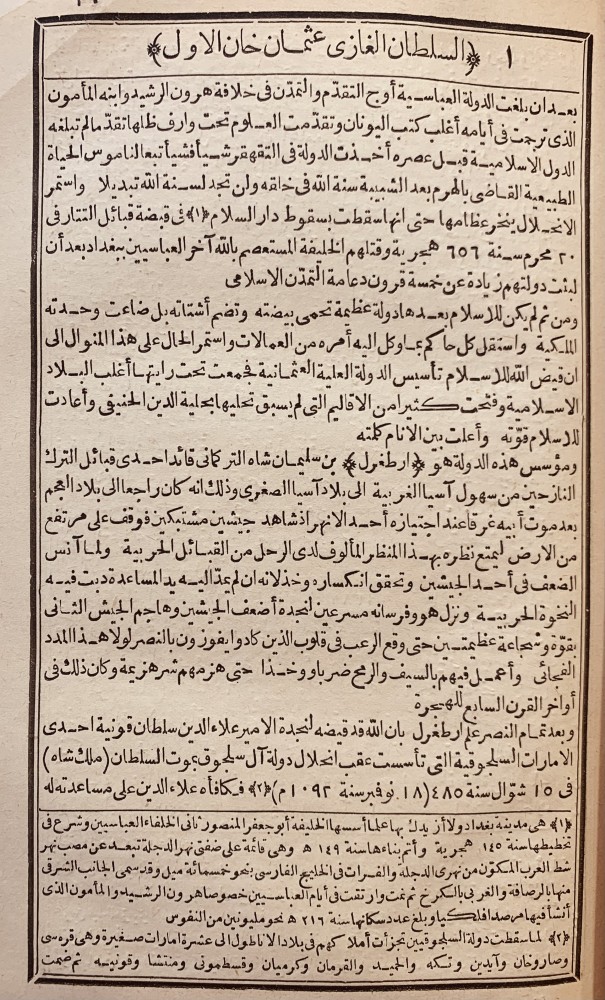 ١ ﴿السلطان الغازى عثمان خان الاول﴾
بعد ان بلغت الدولة العباسية أوج التقدّم والتمدّن فى خلافة هرون الرشيد وابنه المأمون
الذى ترجمت فى أيامه أغلب كتب اليونان وتقدّمت العلوم تحت وارف ظلها تقدّما لم تبلغه
الدول الاسلامية قبل عصره أخذت الدولة فى التقهقر شيأ فشيأ تبعا لناموس الحياة
الطبيعية القاضى بالهرم بعد الشبيبة سنة الله فى خلقه ولن تجد لسنة الله تبديلا واستمر
الانحلال ينخر عظامها حتى انها سقطت بسقوط دار السلام ﴿١﴾ فى قبضة قبائل التتار فى
٢٠ محرم سنة ٦٥٦ هجرية وقتلهم الخليفة المستعصم بالله آخر العباسيين ببغداد بعد أن
لبثت دولتهم زيادة عن خمسة قرون دعامة التمدّن الاسلامى
ومن ثم لم يكن للاسلام بعدها دولة عظيمة تحمى بيضته وتضم أشتاته بل ضاعت وحدته
الملكية واستقل كل حاكم بما وكل اليه أمره من العمالات واستمر الحال على هذا المنوال الى
ان قيض الله للاسلام تأسيس الدولة العلية العثمانية فجمعت تحت رايتها أغلب البلاد
الاسلامية وفتحت كثيرا من الاقاليم التى لم يسبق تحليها بحلية الدين الحنيفى وأعادت
للاسلام قوّته وأعلت بين الانام كلمته
ومؤسس هذه الدولة هو ﴿ارطغرل﴾ بن سليمان شاه التركمانى قائد احدى قبائل الترك
النازحين من سهول آسيا الغربية الى بلاد آسيا الصغرى وذلك انه كان راجعا الى بلاد العجم
بعد موت أبيه غرقا عند اجتيازه أحد الانهر اذ شاهد جيشين مشتبكين فوقف على مرتفع
من الارض ليمتع نظره بهذا المنظر المألوف لدى الرحل من القبائل الحربية ولما آنس
الضعف فى أحد الجيشين وتحقق انكساره وخذلانه ان لم يمدّ اليه يد المساعدة دبت فيه
النخوة الحربية ونزل هو وفرسانه مسرعين لنجدة أضعف الجيشين وهاجم الجيش الثانى
بقوّة وشجاعة عظيمتين حتى وقع الرعب فى قلوب الذين كادوا يفوزون بالنصر لولا هذا المدد
الفجائى وأعمل فيهم بالسيف والرمح ضربا ووخزا حتى هزمهم شر هزيمة وكان ذلك فى
أواخر القرن السابع للهجرة
وبعد تمام النصر علم ارطغرل بان الله قد قيضه لنجدة الامير علاء الدين سلطان قونية احدى
الامارات السلجوقية التى تأسست عقب انحلال دولة آل سلجوق بموت السلطان (ملك شاه)
فى ١٥ شوّال سنة ٤٨٥ (١٨ نوفمبر سنة ١٠٩٢ م) ﴿٢﴾ فكافأه علاء الدين على مساعدته له
﴿١﴾ هى مدينة بغداد ولا أزيدك بها علما أسسها الخليفة أبو جعفر المنصور ثانى الخلفاء العباسيين وشرع فى
تخطيطها سنة ١٤٥ هجرية وأتم بناءها سنة ١٤٩ ه‍ وهى قائمة على ضفتى نهر الدجلة تبعد عن مصب نهر
شط العرب المكوّن من نهرى الدجلة والفرات فى الخليج الفارسى بنحو خمسمائة ميل وقد سمى الجانب الشرقى
منها بالرصافة والغربى بالكرخ ثم نمت وارتقت فى أيام العباسيين خصوصا هرون الرشيد والمأمون الذى
أنشأ فيها مرصدا فلكيا وبلغ عدد سكانها سنة ٢١٦ ه‍ نحو مليونين من النفوس
﴿٢﴾ لما سقطت دولة السلجوقيين تجزأت أملاكهم فى بلاد الاناطول الى عشرة امارات صغيرة وهى قره سى
وصاروخان وآيدين وتكه والحميد والقرمان وكرميان وقسطمونى ومنتشا وقونيه ثم ضمت